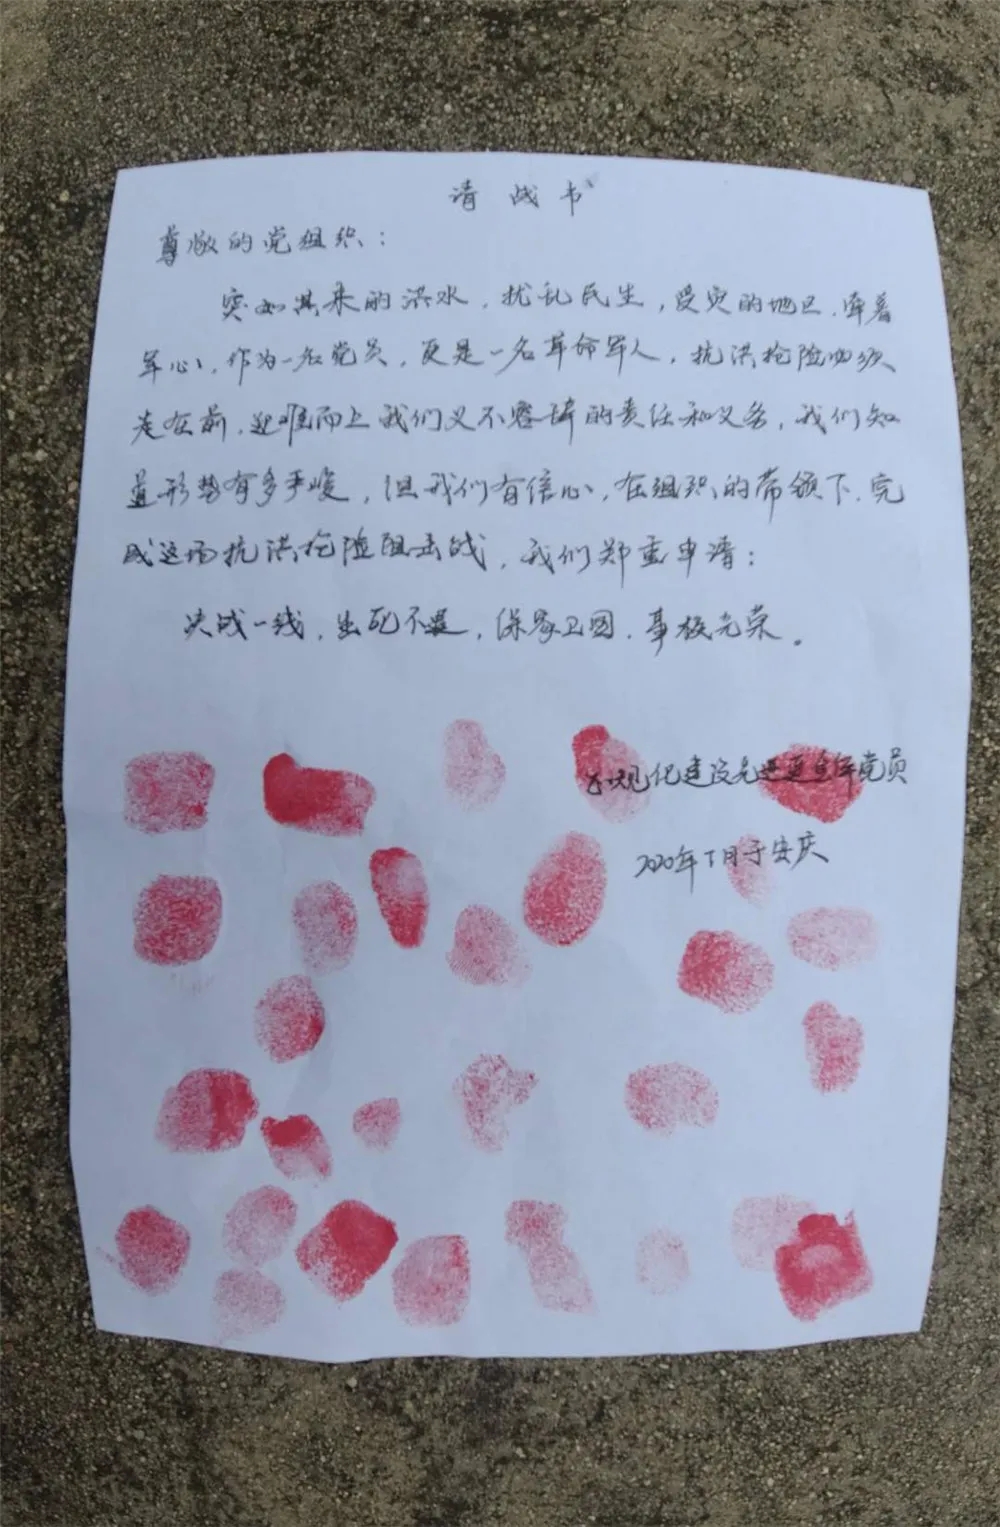 请战书
尊敬的党组织：
突如其来的洪水，扰乱民生，受灾的地区，牵着
军心，作为一名党员，更是一名革命军人，抗洪抢险必须
走在前，迎难而上我们义不容辞的责任和义务，我们知
道形势有多严峻，但我们有信心，在组织的带领下，完
成这场抗洪抢险阻击战，我们郑重申请：
决战一线，生死不畏，保家卫国，事极光荣。
现代化建设先进连全体党员
2020年7月于安庆